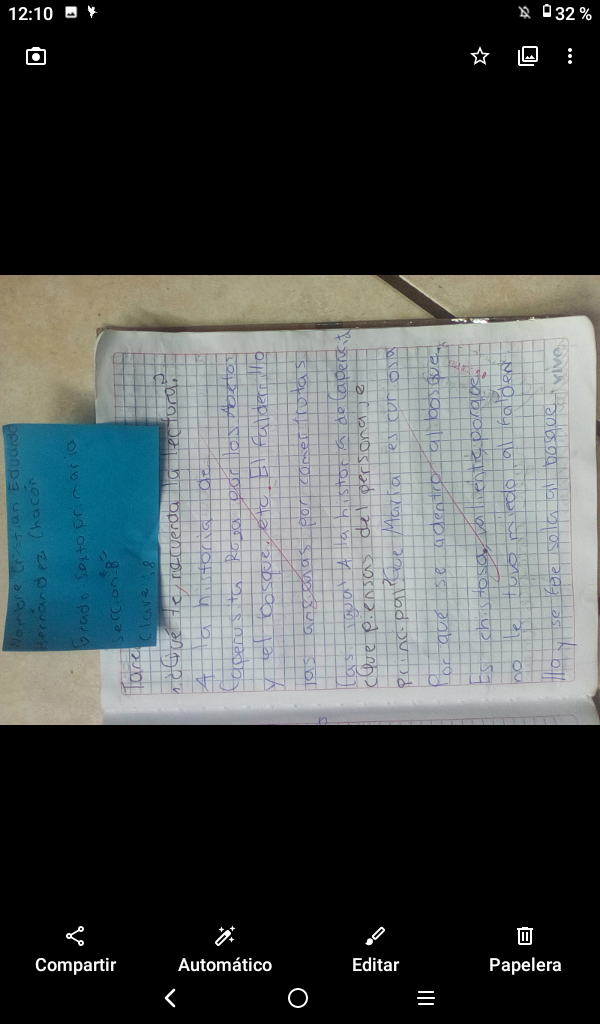 12:10
32 %
Nombre Cristian Eduardo
Hernández Chacón
Grado Sexto primaria
sección "B"
Clave 18
Tarea
¿Que te recuerda la lectura?
A la historia de
Caperusita Roja por los Abetos
y el bosque, etc. El Falderillo
las ansanas por comer frutas
igual A la historia de
¿Que piensas del personaje
principal? Que María es curiosa
Por que se adentro al bosque,
Es chistosa, valiente, porque
no le tuvo miedo al falderi
llo y se fue sola al bosque
Compartir
Automático
Editar
Papelera